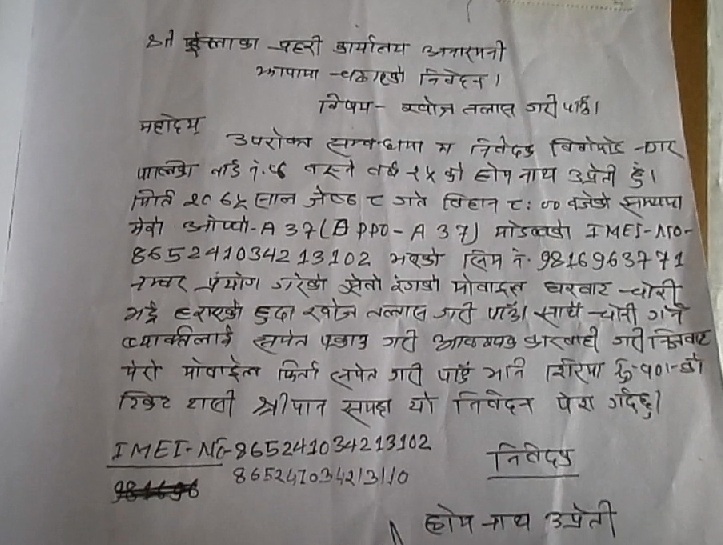 श्री ईलाका प्रहरी कार्यालय अनारमनी
झापामा चढाएको निवेदन।
विषय- खोज तलास गरी पाउँ।
महोदय
उपरोक्त सम्बन्धमा म निवेदक बिर्तामोड नगर
पालिका वार्ड नं. ५ बस्ने वर्ष २५ को होम नाथ उप्रेती हुँ।
मिति २०७५ साल जेष्ठ ८ गते बिहान ८:०० बजेको समयमा
मेरो ओप्पो-A 37 (OPPO-A 37) मोडलको IMEI-NO-
865241034213102 भएको सिम नं. 9816963771
नम्बर प्रयोग गरेको सेतो रंगको मोवाइल घरबाट चोरी
भई हराएको हुदा खोज तलास गरी पाउँ। साथै चोरी गर्ने
ब्याक्तीलाई समेत पक्राउ गरी आवश्यक कारवाही गरी निजबाट
मेरो मोवाईल फिर्ता समेत गरी पाउँ भनि निरिपा रु-१०।-को
टिकट टासी श्रीमान समक्ष यो निवेदन पेश गर्दछु।
IMEI-NO-865241034213102
865241034213110
निवेदक
होम नाथ उप्रेती